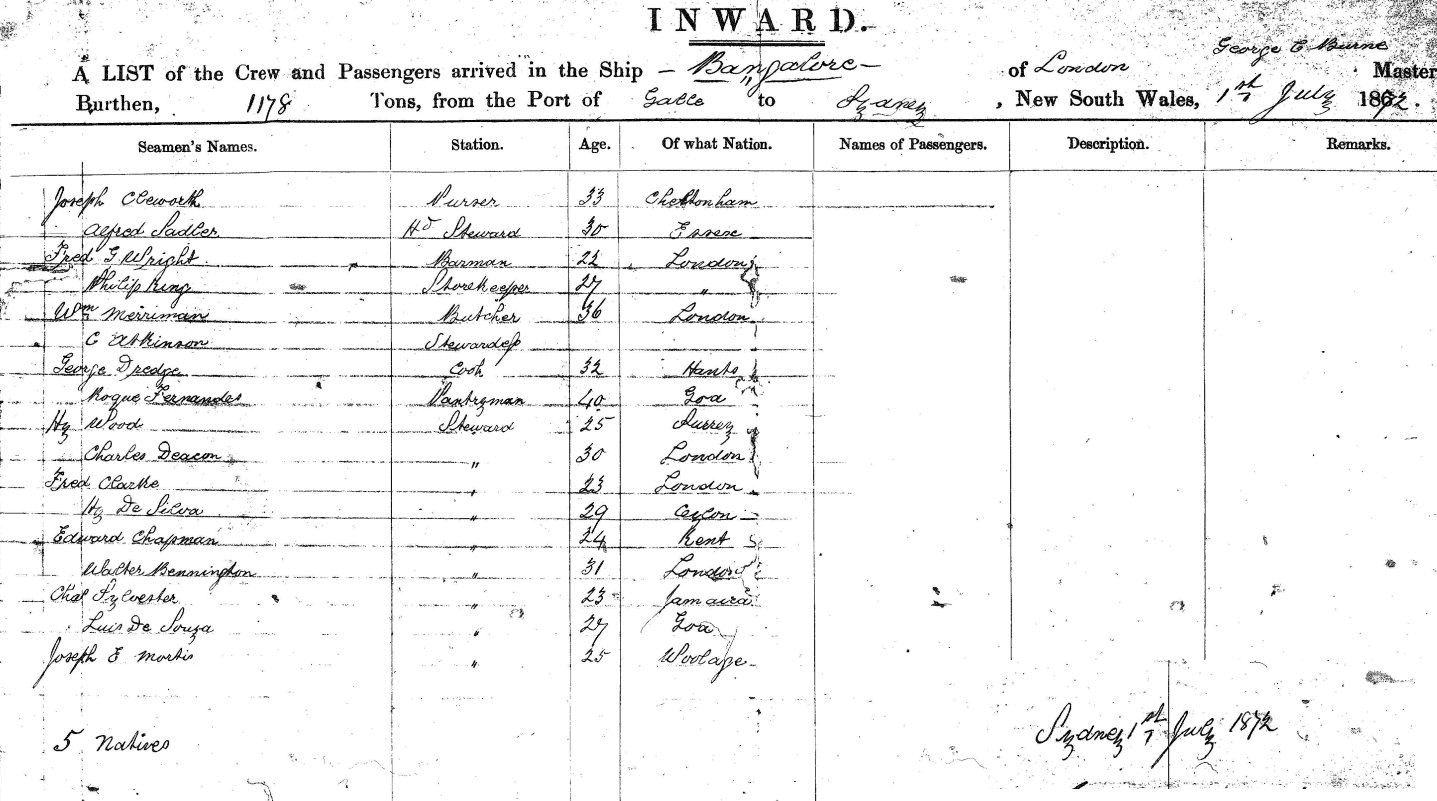 INWARD.
George E Burne
A LIST of the Crew and Passengers arrived in the Ship – Bangalore – of London Master
Burthen, 1178 Tons, from the Port of Galle to Sydney, New South Wales, 1st July 1872.
Seamen's Names. Station. Age. Of what Nation. Names of Passengers. Description. Remarks.
Joseph Cleworth Purser 33 Cheltonham
Alfred Sadler Hd Steward 30 Essex
Fred G Wright Barman 22 London
Philip King Storekeeper 27 "
Wm Merriman Butcher 36 London
C Atkinson Stewardess
George Dredge Cook 32 Hants
Roque Fernandes Pantryman 40 Goa
Hy Wood Steward 25 Surrey
Charles Deacon " 30 London
Fred Clarke " 23 London
Hy De Silva " 29 Ceylon
Edward Chapman " 24 Kent
Walter Bennington " 31 London
Chas Sylvester " 23 Jamaica
Luis De Souza " 27 Goa
Joseph E " 25
Sydney 1st July 1872
5 Natives